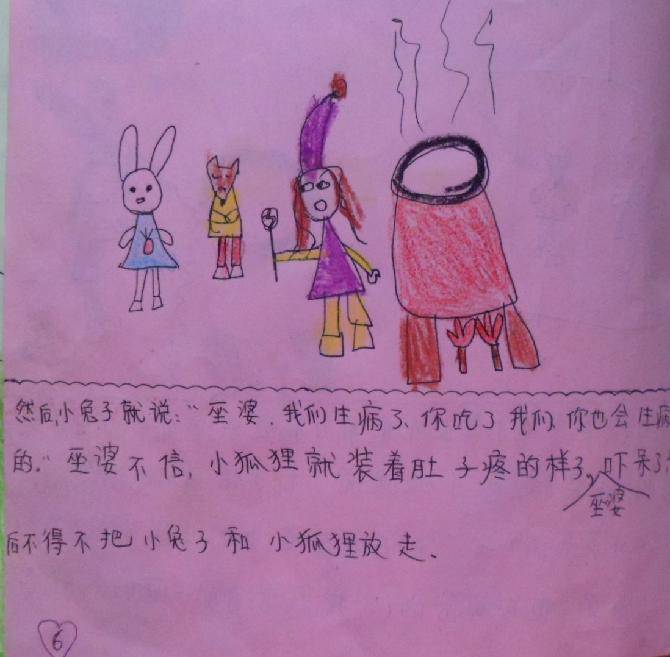 然后,小兔子就说：“巫婆，我们生病了、你吃了我们、你也会生病
的。”巫婆不信，小狐狸就装着肚子疼的样子，巫婆吓呆了
后不得不把小兔子和小狐狸放走、
6